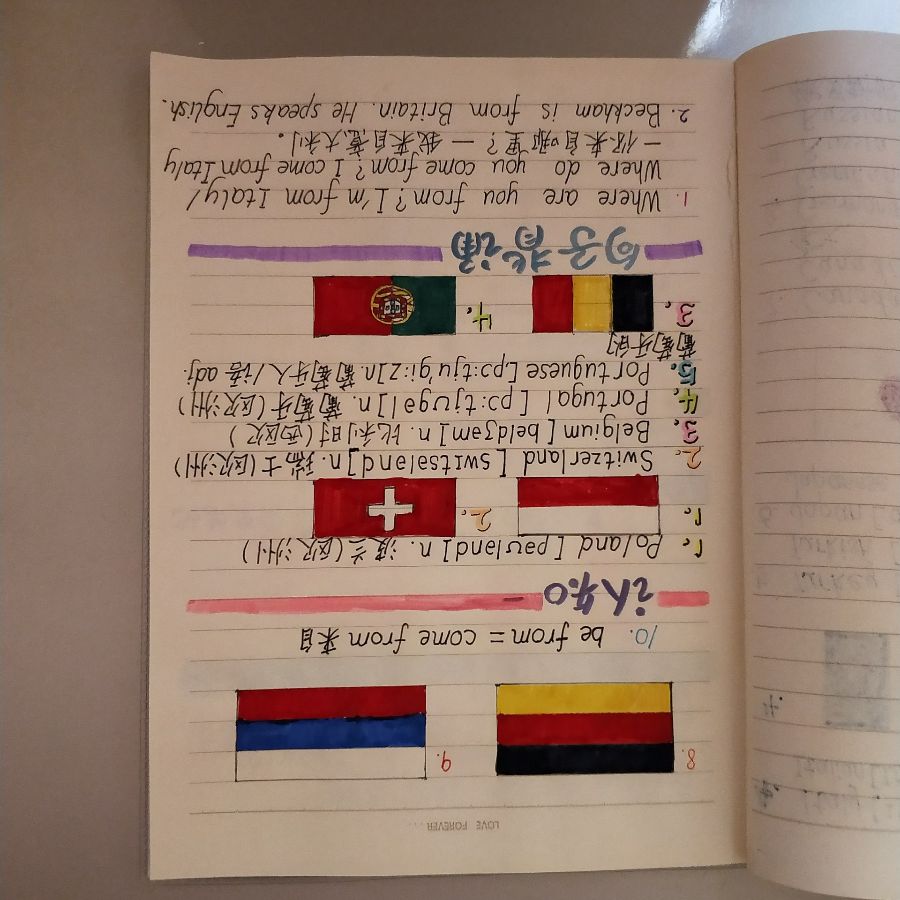 LOVE FOREVER...
8. 9.
10. be from = come from 来自
认知
1. Poland [pəʊlənd] n. 波兰(欧洲)
1. 2.
2. Switzerland [swɪtsələnd] n. 瑞士(欧洲)
3. Belgium [beldʒəm] n. 比利时(西欧)
4. Portugal [pɔ:tjʊgəl] n. 葡萄牙(欧洲)
5. Portuguese [pɔ:tju'gi:z] n. 葡萄牙人/语 adj.
葡萄牙的
3. 4.
句子背诵
1. Where are you from? I'm from Italy/
Where do you come from? I come from Italy
一你来自哪里? 一我来自意大利。
2. Beckham is from Britain. He speaks English.